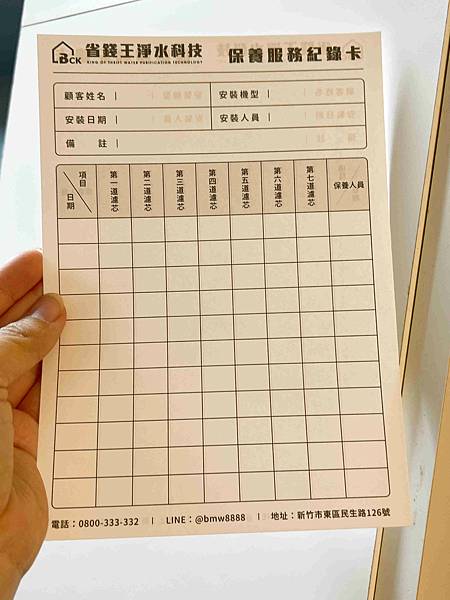 BCK 省錢王淨水科技 保養服務紀錄卡
KING OF THRIFT WATER PURIFICATION TECHNOLOGY
顧客姓名 | 安裝機型 |
安裝日期 | 安裝人員 |
備 註 |
項目 日期 第一道濾芯 第二道濾芯 第三道濾芯 第四道濾芯 第五道濾芯 第六道濾芯 第七道濾芯 保養人員
電話：0800-333-332 | LINE：@bmw8888 | 地址：新竹市東區民生路126號